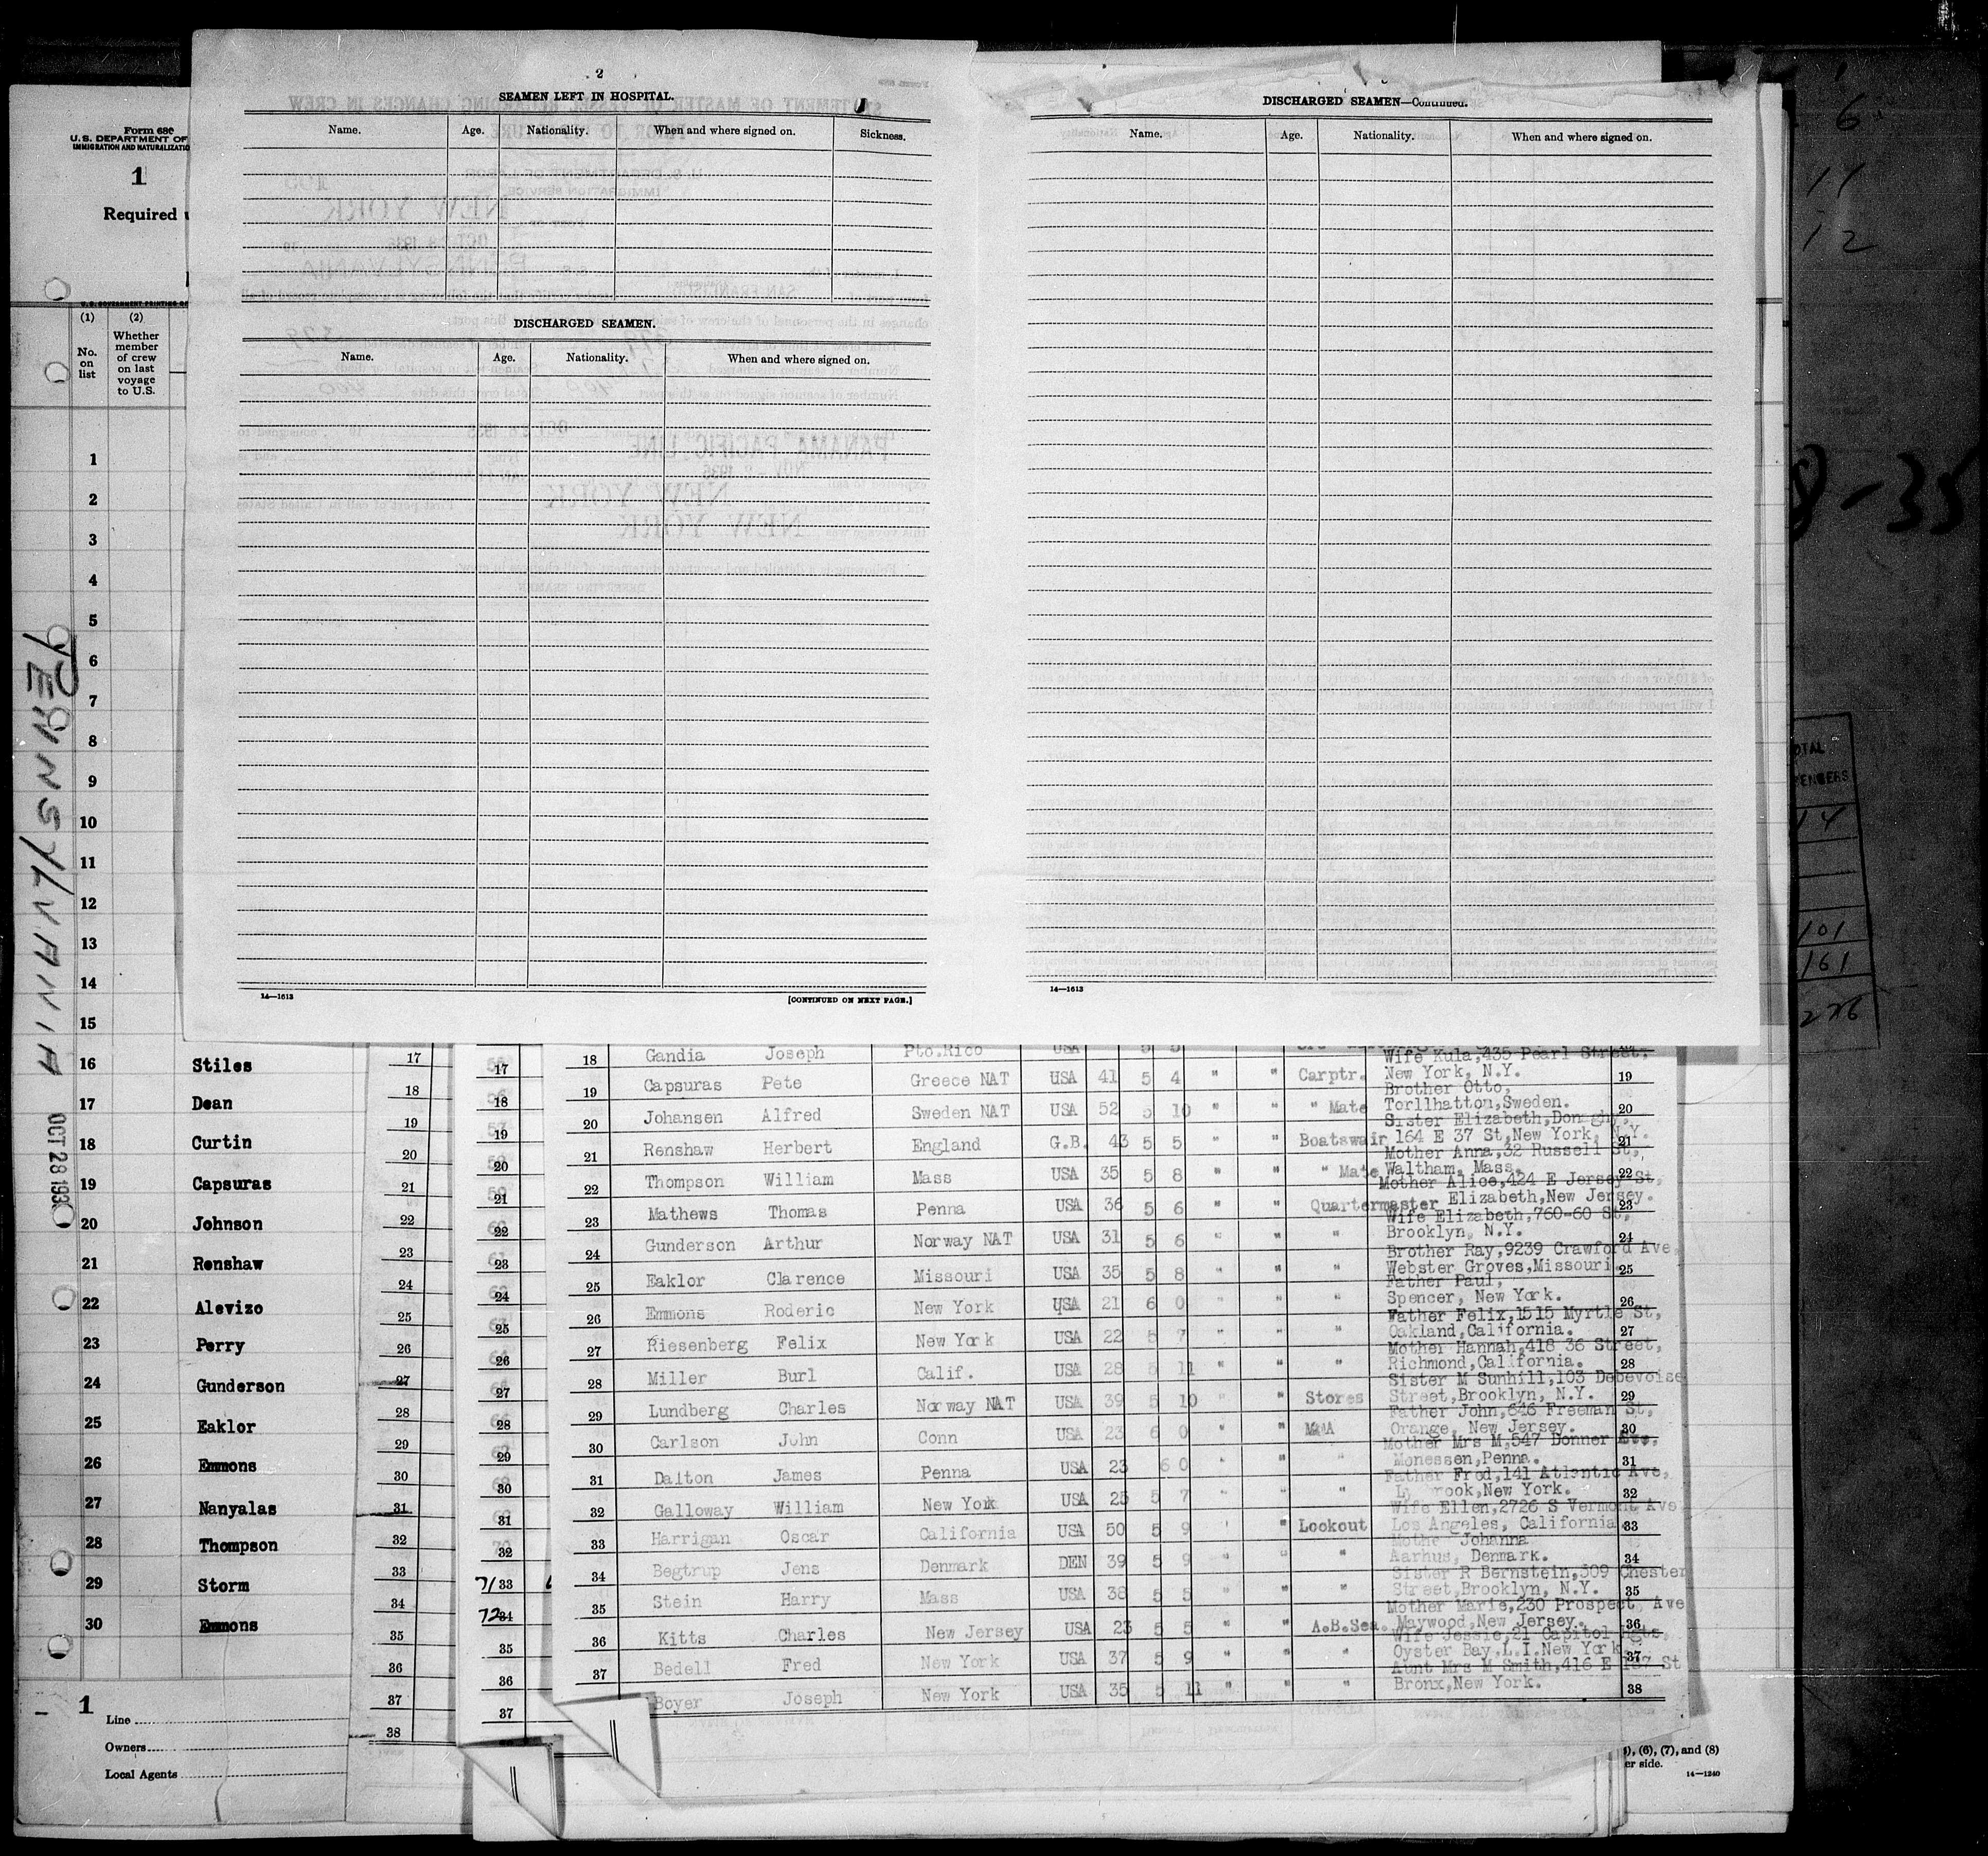 2
SEAMEN LEFT IN HOSPITAL.
Name. Age. Nationality. When and where signed on. Sickness.
DISCHARGED SEAMEN.
Name. Age. Nationality. When and where signed on.
14—1613
[CONTINUED ON NEXT PAGE.]
DISCHARGED SEAMEN—Continued.
Name. Age. Nationality. When and where signed on.
14—1613
Form 680
U.S. DEPARTMENT OF
IMMIGRATION AND NATURALIZATIO
1
Required
U.S. GOVERNMENT PRINTING OF
(1) (2)
No. on list
Whether member of crew on last voyage to U.S.
1
2
3
4
5
6
7
8
9
10
11
12
13
14
15
16 Stiles
17 Dean
18 Curtin
19 Capsuras
20 Johnson
21 Renshaw
22 Alevizo
23 Perry
24 Gunderson
25 Eaklor
26 Emmons
27 Nanyalas
28 Thompson
29 Storm
30 Emmons
1
Line
Owners
Local Agents
PENNSYLVANIA
OCT 28 193
17
18
19
20
21
22
23
24
25
26
27
28
29
30
31
32
33
34
35
36
37
38
17
18
19
20
21
22
23
24
25
26
27
28
29
30
31
32
71 33
72 34
35
36
37
18 Gandia Joseph Pto.Rico USA 5 5
Wife Kula,435 Pearl Street.
19 Capsuras Pete Greece NAT USA 41 5 4 " " Carptr. New York, N.Y. 19
Brother Otto,
20 Johansen Alfred Sweden NAT USA 52 5 10 " " " Mate Torllhatton,Sweden. 20
Sister Elizabeth,Donaghy,
21 Renshaw Herbert England G.B. 43 5 5 " " Boatswain 164 E 37 St,New York, N.Y. 21
Mother Anna,32 Russell St,
22 Thompson William Mass USA 35 5 8 " " " Mate Waltham, Mass. 22
Mother Alice,424 E Jersey St,
23 Mathews Thomas Penna USA 36 5 6 " " Quartermaster Elizabeth,New Jersey. 23
Wife Elizabeth,760-60 St,
24 Gunderson Arthur Norway NAT USA 31 5 6 " " " Brooklyn, N.Y. 24
Brother Ray,9239 Crawford Ave
25 Eaklor Clarence Missouri USA 35 5 8 " " " Webster Groves,Missouri. 25
Father Paul,
26 Emmons Roderic New York USA 21 6 0 " " " Spencer, New York. 26
Father Felix,1515 Myrtle St,
27 Riesenberg Felix New York USA 22 5 7 " " " Oakland,California. 27
Mother Hannah,418 36 Street,
28 Miller Burl Calif. USA 28 5 11 " " " Richmond,California. 28
Sister M Sunhill,103 Debevoise
29 Lundberg Charles Norway NAT USA 39 5 10 " " Stores Street,Brooklyn, N.Y. 29
Father John,646 Freeman St,
30 Carlson John Conn USA 23 6 0 " " Orange, New Jersey. 30
Mother Mrs M,547 Donner Ave.
31 Dalton James Penna USA 23 6 0 " " " Monessen,Penna. 31
Father Fred,141 Atlantic Ave,
32 Galloway William New York USA 25 5 7 " " " rook,New York. 32
Wife Ellen,2726 S Vermont Ave
33 Harrigan Oscar California USA 50 5 9 " " Lookout Los Angeles, California 33
Mothe Johanna
34 Begtrup Jens Denmark DEN 39 5 9 " " " Aarhus, Denmark. 34
Sister R Bernstein,309 Chester
35 Stein Harry Mass USA 38 5 5 " " " Street,Brooklyn, N.Y. 35
Mother Marie,230 Prospect Ave
36 Kitts Charles New Jersey USA 23 5 5 " " A.B.Sea. Maywood,New Jersey. 36
Wife Jessie,21 Capitol Hgts.
37 Bedell Fred New York USA 37 5 9 " " " Oyster Bay,L.I.New York. 37
Aunt Mrs M Smith,416 E 187 St
Boyer Joseph New York USA 35 5 11 " " " Bronx,New York. 38
), (6), (7), and (8)
er side.
14—1240
6
11
12
8-35
OTAL
ENGERS
14
101
161
226